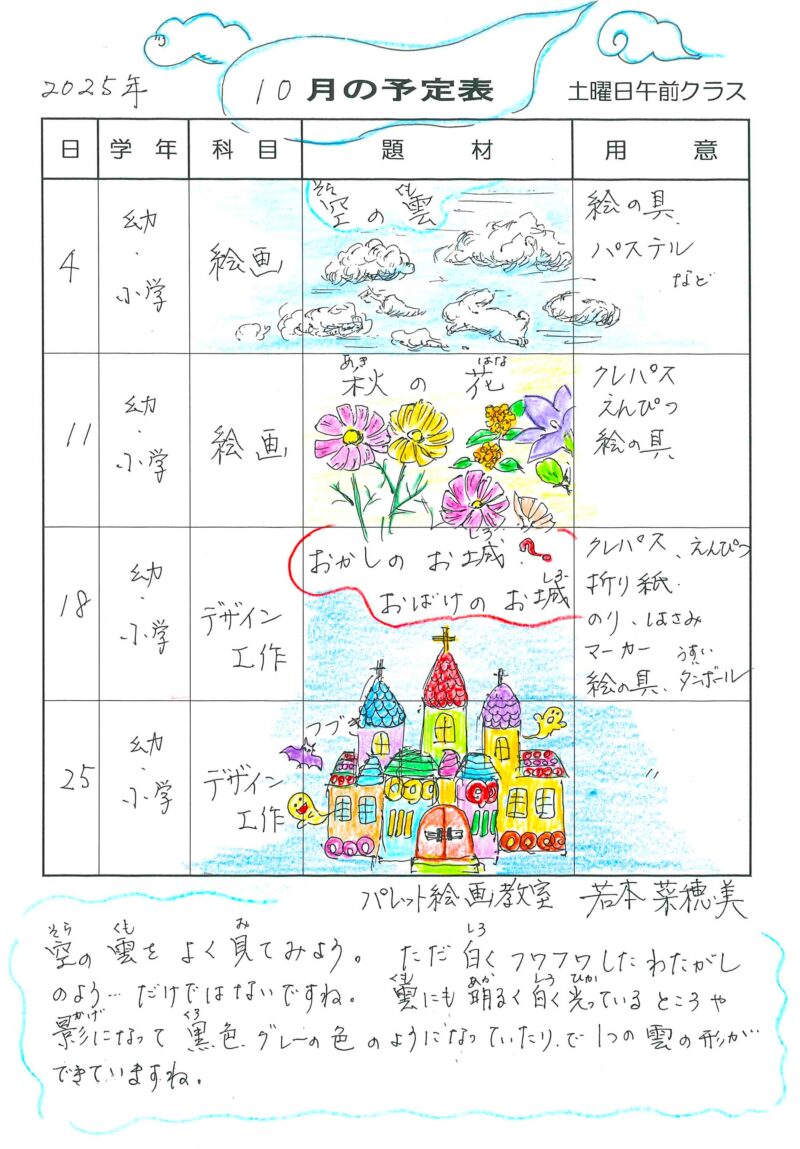 2025年 10月の予定表 土曜日午前クラス
日 学年 科目 題材 用意
4 幼・小学 絵画 空の雲 絵の具、パステルなど
そら くも
11 幼・小学 絵画 秋の花 クレパス えんぴつ 絵の具
あき はな
18 幼・小学 デザイン工作 おかしのお城? おばけのお城 クレパス、えんぴつ 折り紙 のり、はさみ マーカー 絵の具、うすいダンボール
しろ しろ
25 幼・小学 デザイン工作 つづき 〃
パレット絵画教室 若本菜穂美
そら くも み しろ
空の雲をよく見てみよう。ただ白くフワフワしたわたがし
くも あか しろ ひか
のよう…だけではないですね。雲にも明るく白く光っているところや
かげ くろ
影になって黒色、グレーの色のようになっていたり、で1つの雲の形が
できていますね。